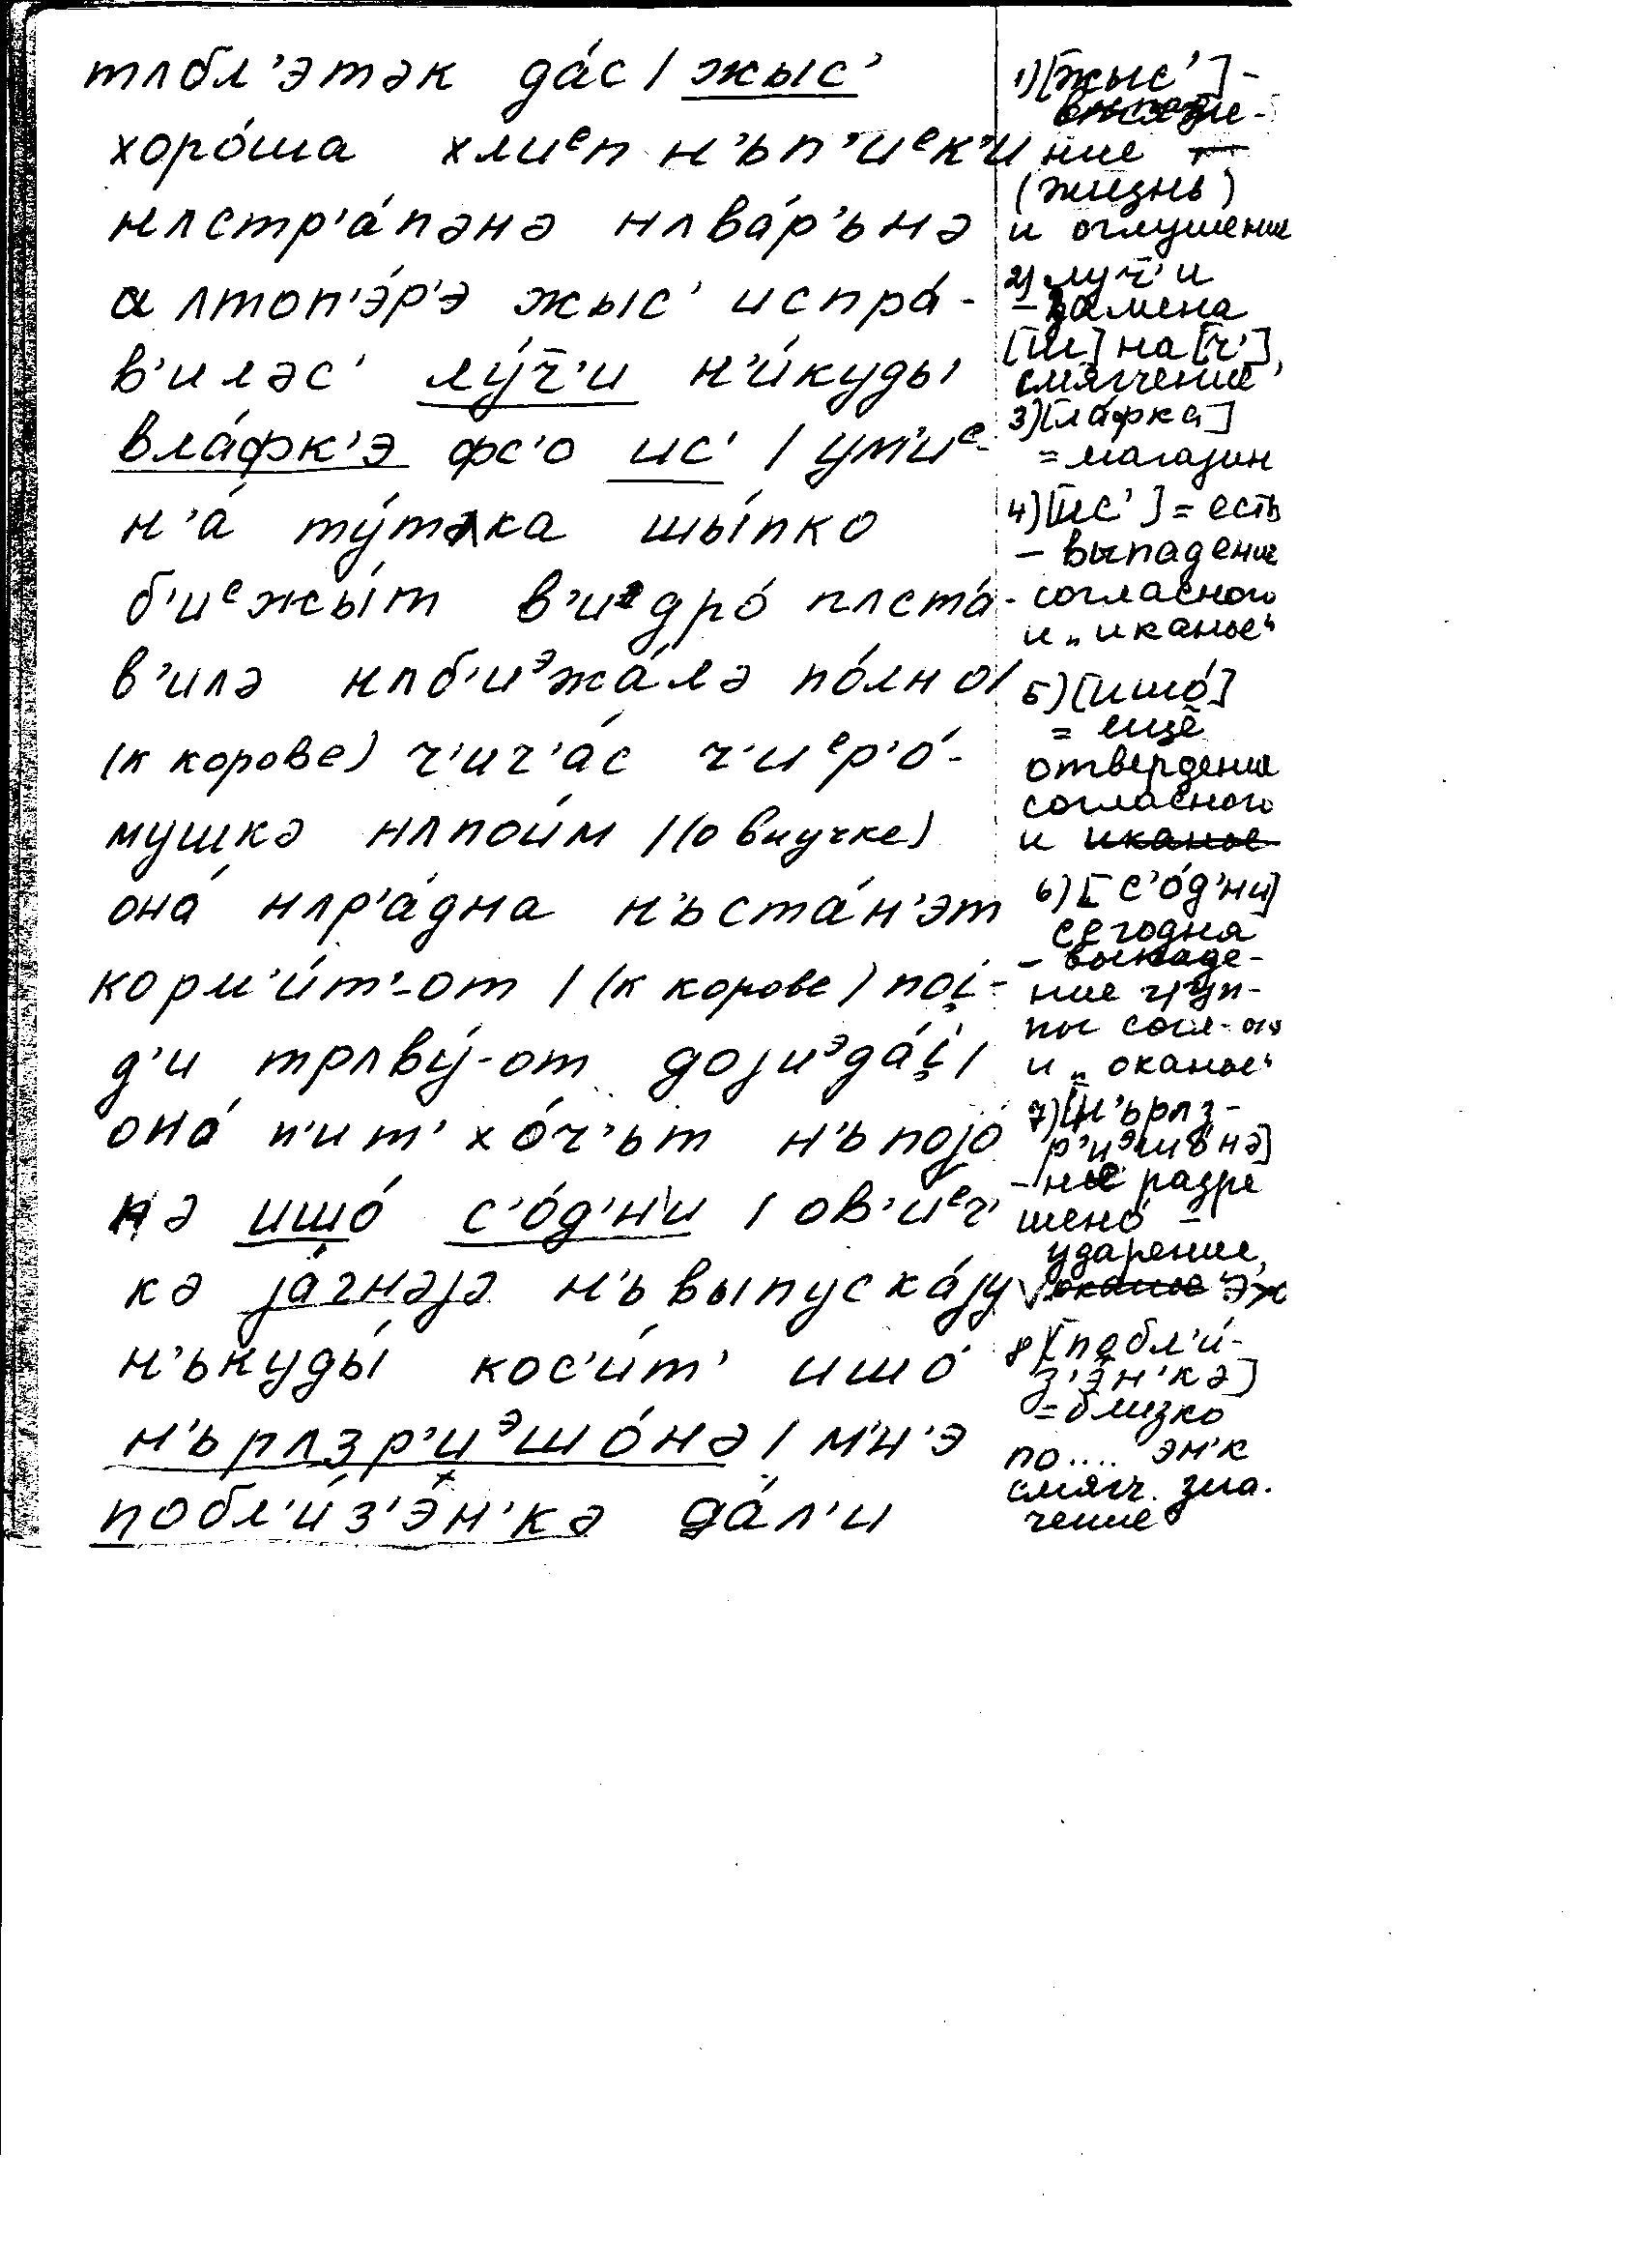 тʌбл'этәк да́с / жыс'
хоро́ша хлиᵉп н'ъп'иᵉк'и
нʌстр'а́пәнә нʌва́р'ънә
а ʌтоп'э́р'э жыс' испра́-
в'иләс' лу́ч̄'и н'и́куды
вла́фк'э фс'о ис' / ум'иᵉ-
н'а́ ту́тʌка шы́пко
б'иᵉжы́т в'идро́ пʌста́-
в'илә нʌб'иᵊжа́лә по́лно /
(к корове) ч'ич'а́с ч'иᵉр'о́-
мушкә нʌпои́м / (о внучке)
она́ нʌр'а́дна н'ъста́н'эт
корм'и́т'-от / (к корове) пои̯-
д'и трʌву́-от доjиᵊда́и̯ /
она́ п'ит' хо́ч'ът н'ъпоjо́
нә ишо́ с'о́д'н'и / ов'иᵉч'
кә jа́гнәjә н'ъвыпуска́jу
н'ъкуды́ кос'и́т' ишо́
н'ърʌзр'иᵊшо́нә / м'н'э
побл'и́з'э́н'кә да́л'и
1) [жыс'] -
выпаде-
ние
(жизнь)
и оглушение
2) луч̄'и
- замена
[ш] на [ч'],
смягчение
3) [ла́фка]
= магазин
4) [ис'] = есть
- выпадение
согласного
и „иканье“
5) [ишо́]
= ещё
отвердение
согласного
и иканье
6) [с'о́д'ни]
сегодня
- выпаде-
ние груп-
пы согл-ого
и „оканье“
7) [н'ърʌз-
р'иᵊшо́нә]
- не разре
шено́ -
ударение,
оканье
8) [побл'и́-
з'э́н'кә]
= близко
по.... эн'к
смягч. зна-
чение